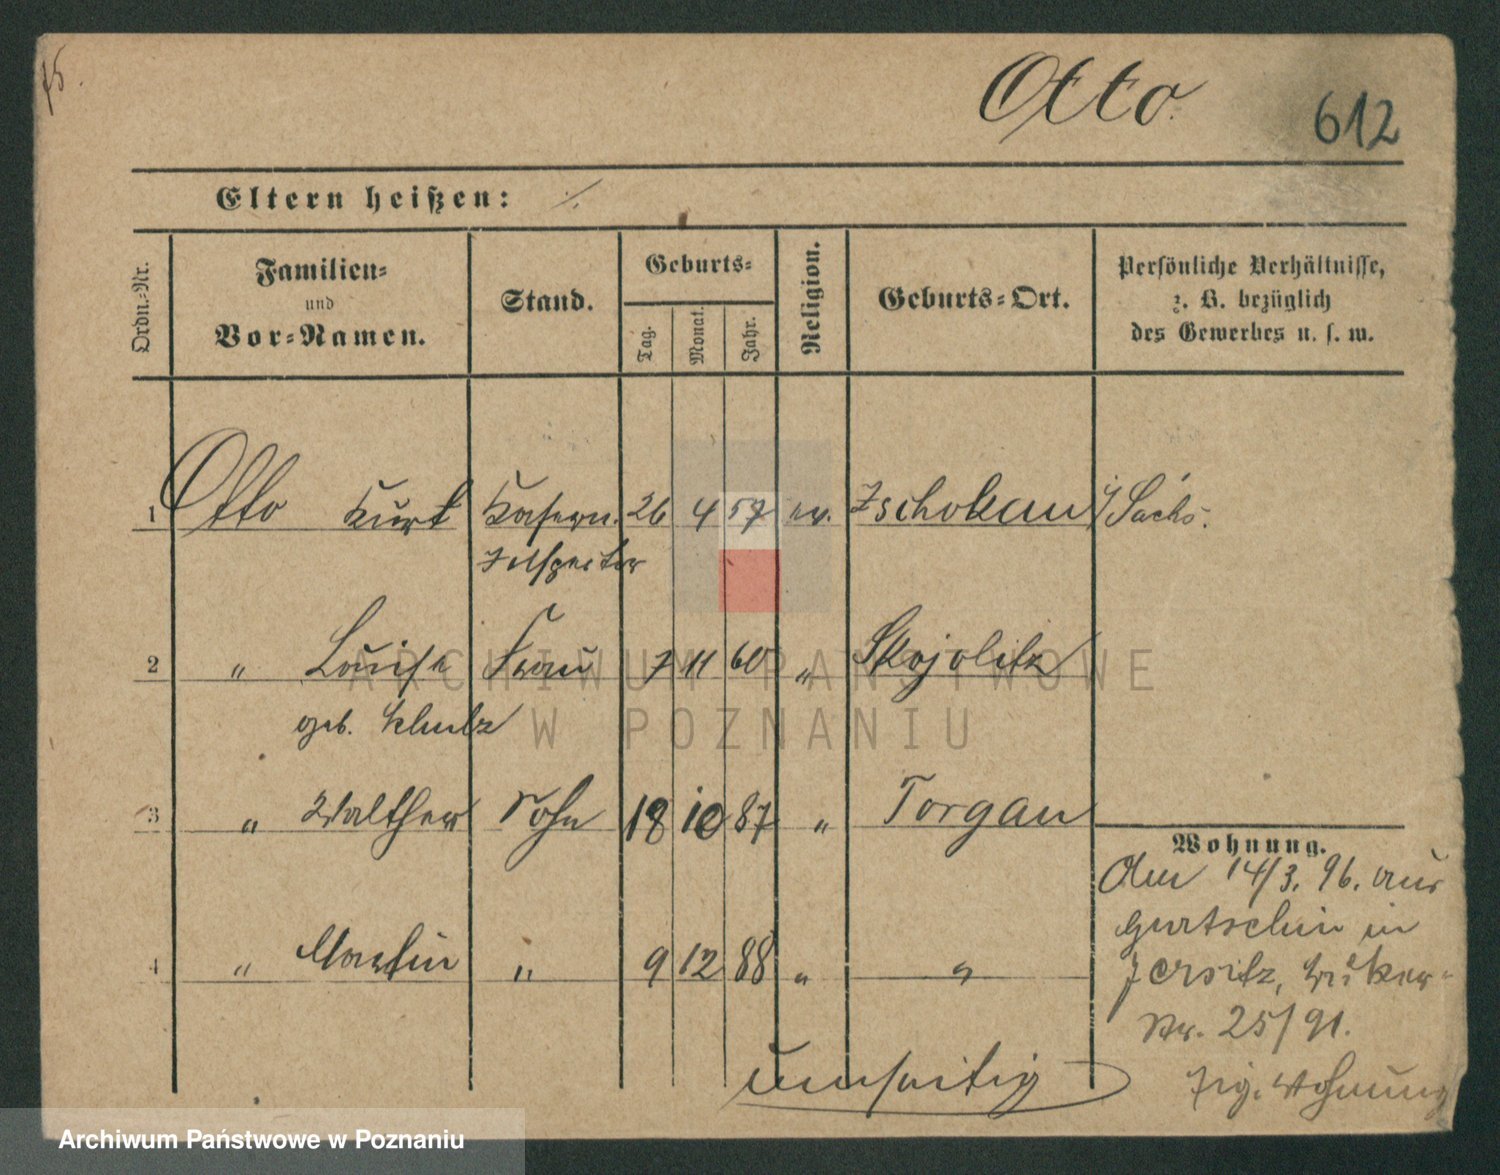 75.
Otto.
612
Eltern heißen: ./.
Ordn.-Nr.
Familien-
und
Vor-Namen.
Stand.
Geburts-
Tag.
Monat.
Jahr.
Religion.
Geburts-Ort.
Persönliche Verhältnisse,
z. B. bezüglich
des Gewerbes u. s. w.
1 Otto Kurt Kasern. 26 4 57 ev. Zschokau i/Sachs.
Inspektor
2 " Louise Frau 7 11 60 "
geb.
3 " Walther Sohn 18 10 87 " Torgau
4 " Martin " 9 12 88 " "
Wohnung.
Am 14/3. 96. aus
Gurtschin in
Jersitz,
Str. 25/91.
Wohnung
umseitig
ARCHIWUM PAŃSTWOWE
W POZNANIU
Archiwum Państwowe w Poznaniu